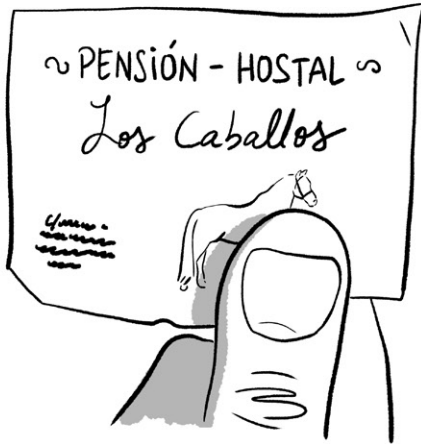 PENSIÓN - HOSTAL
Los Caballos